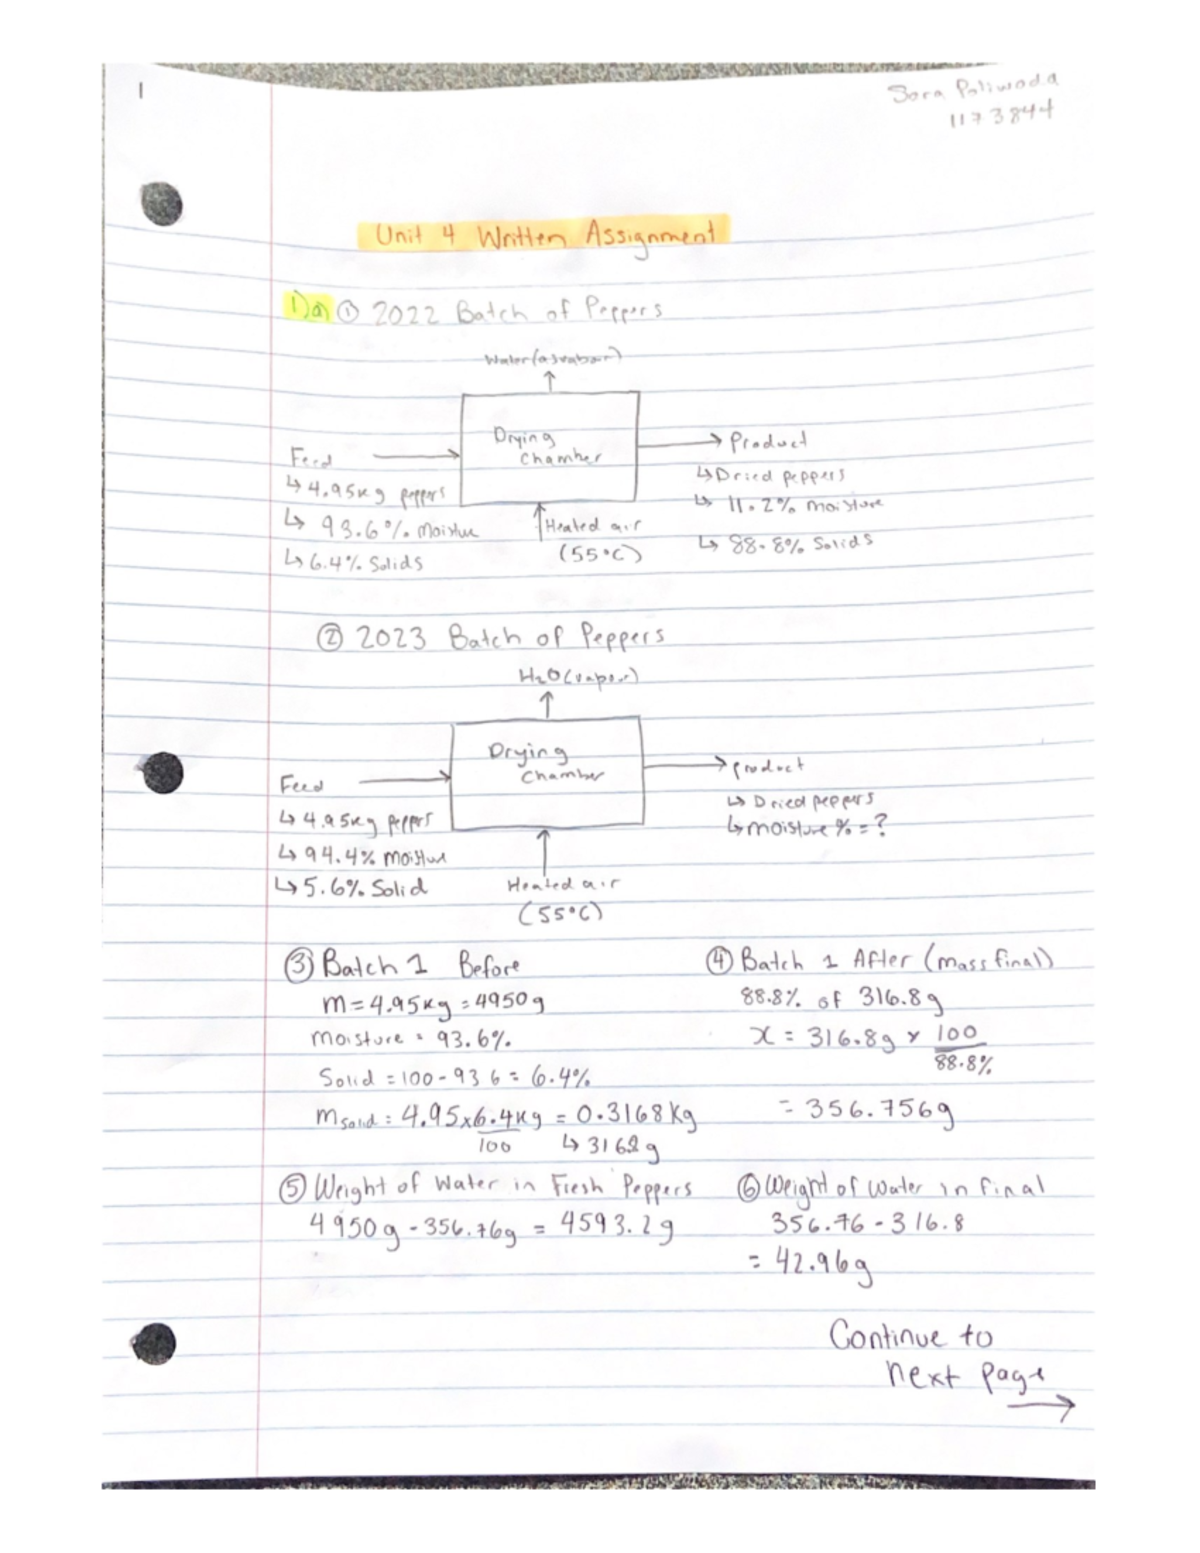 1
Sara Poliwoda
1173844
Unit 4 Written Assignment
1)a) ① 2022 Batch of Peppers
Water (as vabor)
Drying
chamber
Feed
↳ 4.95kg peppers
↳ 93.6% Moistue
↳ 6.4% Solids
Heated air
(55°C)
→ Product
↳ Dried peppers
↳ 11.2% moisture
↳ 88.8% Solids
② 2023 Batch of Peppers
H2O (vapor)
Drying
chamber
Feed
↳ 4.95kg peppers
↳ 94.4% moisture
↳ 5.6% Solid
Heated air
(55°C)
→ product
↳ Dried peppers
↳ moisture % = ?
③ Batch 1 Before
m = 4.95kg = 4950g
moisture = 93.6%
Solid = 100 - 93.6 = 6.4%
m solid = 4.95 x 6.4kg = 0.3168 kg
100 ↳ 316.8 g
④ Batch 1 After (mass final)
88.8% of 316.8g
x = 316.8g x 100
88.8%
= 356.756g
⑤ Weight of Water in Fresh Peppers
4950g - 356.76g = 4593.2g
⑥ Weight of water in final
356.76 - 316.8
= 42.96g
Continue to
next page
→